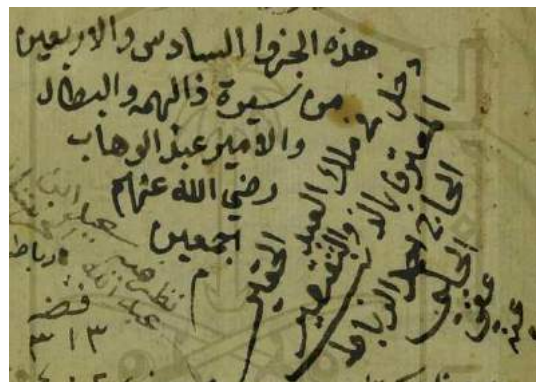 هذه الجزوا السادس والاربعين
من سيرة ذالهمه والبطال
والامير عبد الوهاب
رضي الله عنهم
اجمعين
م
دخل في ملك العبد الحقير
المعترف بالذنب والتقصير
الحاج احمد الرباط
الحلبي
عفي عنه
نظر فيه
عبد الله
رباط
٣١٣